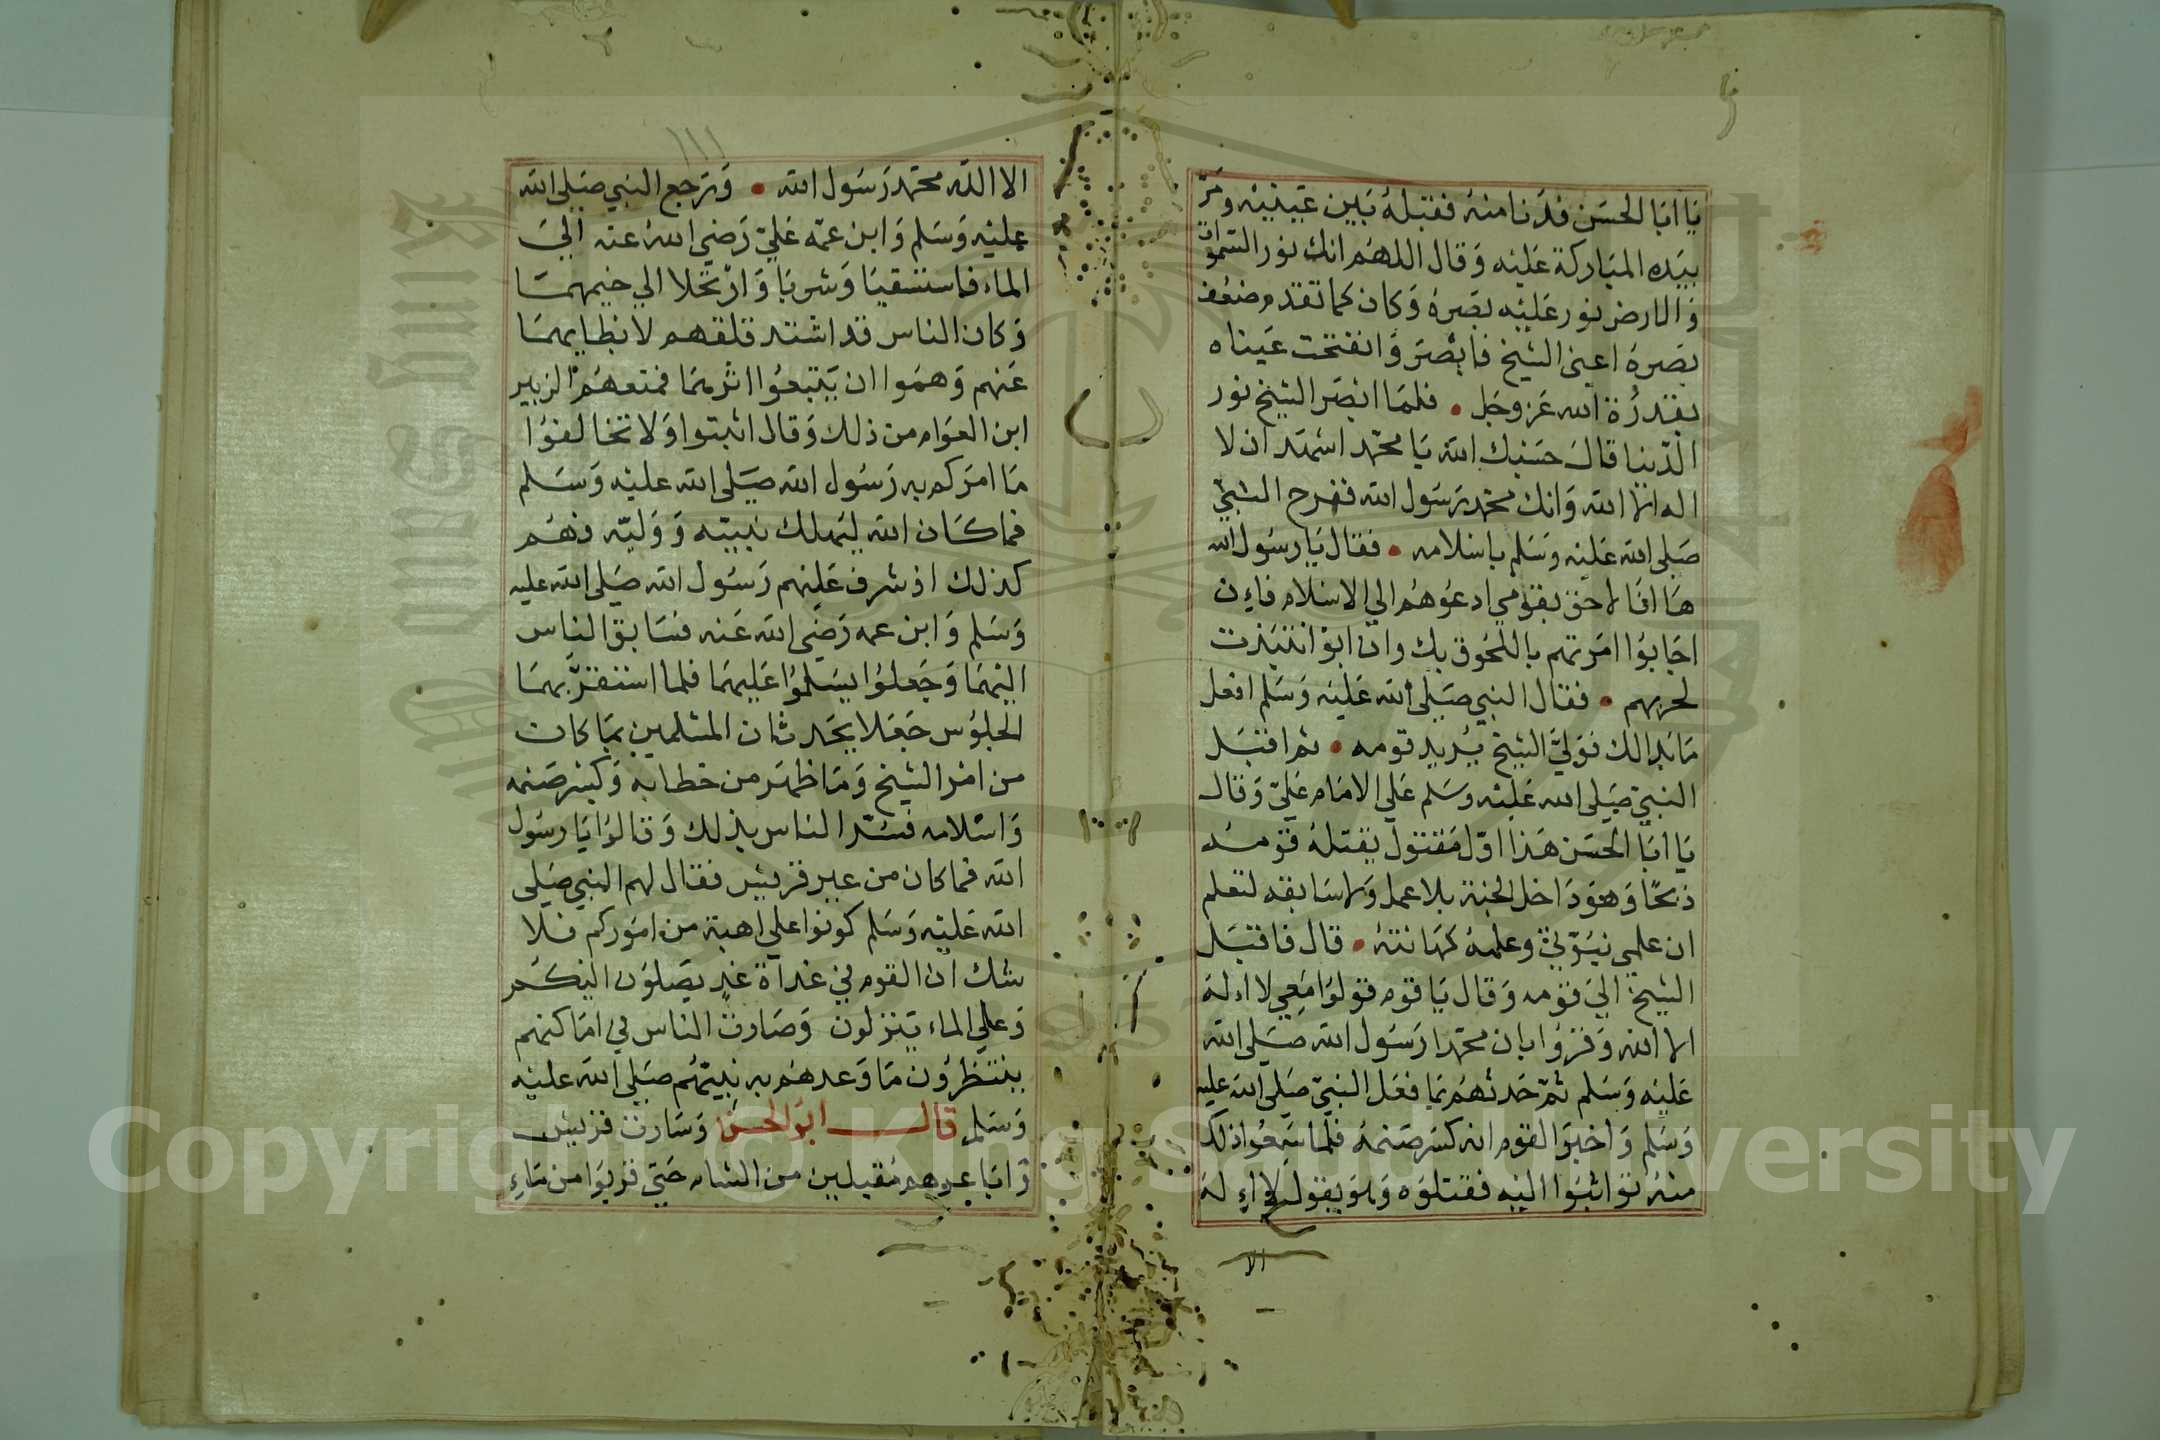 يَا ابَا الحسَن فدَنا منهُ فقبلهُ بَين عَينيْه وَمَرَّ
بيَده المبَاركة عَليْه وَقال اللهُم انك نور السموَات
وَالارض نور عَليْه بصَرهُ وَكان كما تقدم ضعُف
بصَرهُ اعني الشيخ فابْصَر وَانفتحت عَيناه
بقدرُة الله عَز وجَل • فلما ابْصَر الشيخ نور
الدّنيا قالَ حسْبك الله يَا محمّد اشهَد ان لا
اله الا الله وَانك محمّد رَسُول الله ففرح النبيّ
صَلى الله عَليْه وَسَلم باسْلامه • فقال يَا رسُول الله
هَا انا لاحق بقوْمي ادعُوهُم الي الاسْلام فاءِن
اجَابوُا امَرتهم باللحُوق بك وان ابوْا انتبَذت
لحربهم • فقال النبي صَلى الله عَليْه وَسَلم افعل
مَا بَدالك فوَليّ الشيخ يُريد قومه • ثم اقبَل
النبيّ صَلى الله عَليْه وسَلم عَلي الامَام عَليّ وَقال
يَا ابَا الحسَن هَذا اوّل مَقتول يقتلهُ قومُه
ذبحًا وَهوَ دَاخل الجنة بلا عمل وَلا سَابقه لتعلم
ان علمي نبُوّة وعلمهُ كهَانة • قال فاقبَل
الشيخ الي قوْمه وَقال يَا قوم قولوُا مَعي لا اله
الا الله وَقرُوا بان محمّدا رَسُول الله صَلى الله
عَليْه وَسَلم ثمّ حَدثهُم بمَا فعَل النبيّ صَلى الله عليه
وَسَلم وَاخبرَ القوم انه كسَر صَنمهُ فلما سَمعُوا ذلك
منهُ توَاثبوُا اليْه فقتلوُه وَهوَ يقول لا اله
الا
الا الله محمّد رَسُول الله • وَرَجع النبي صَلى الله
عليْه وَسَلم وَابن عمّه عَليّ رَضي اللهُ عنه الي
الماء فاستسْقيَا وَشربَا وَارْتحَلا الي خيمهمَا
وَكان الناس قد اشتد قلقهم لابطايهمَا
عَنهم وَهمُوا ان يتبَعُوا اثرهمَا فمنعهُمْ الزبير
ابن العوَام من ذلك وَقال اثبتوا وَلا تخالفوُا
مَا امَركم به رَسُول الله صَلى الله عليْه وَسَلم
فما كَان الله ليَهلك نبيّه وَوَليّه فهُم
كذلك اذ شرف عَليْهم رَسُول الله صَلى الله عليه
وَسَلم وَابن عمه رَضي الله عَنه فسَابق الناس
اليْهمَا وَجَعلوُا يسَلموُا عَليهمَا فلما استقرَّ بهمَا
الجلوُس جَعَلا يحَدثان المسْلمين بمَا كان
من امْر الشيخ وَمَا ظهَر من خطابه وَكسْر صَنمه
وَاسْلامه فسُرّ الناس بذلك وَقالوُا يَا رسُول
الله فما كان من عير قريش فقال لهم النبي صَلى
الله عَليْه وَسَلم كونوا علي اهبة من امَوركم فلا
شك ان القوم في غداة غدٍ يصَلوُن اليْكم
وَعلي الماء ينزلون وَصَارت الناس في امَاكنهم
ينتظرُون مَا وَعدهُم به نبيّهُم صَلى الله عليْه
وَسَلم قال ابوَ الحسَن وَسَارت قريش
وَابَاعرهم مُقبلين من الشام حَتي قربوَا من مَاءِ